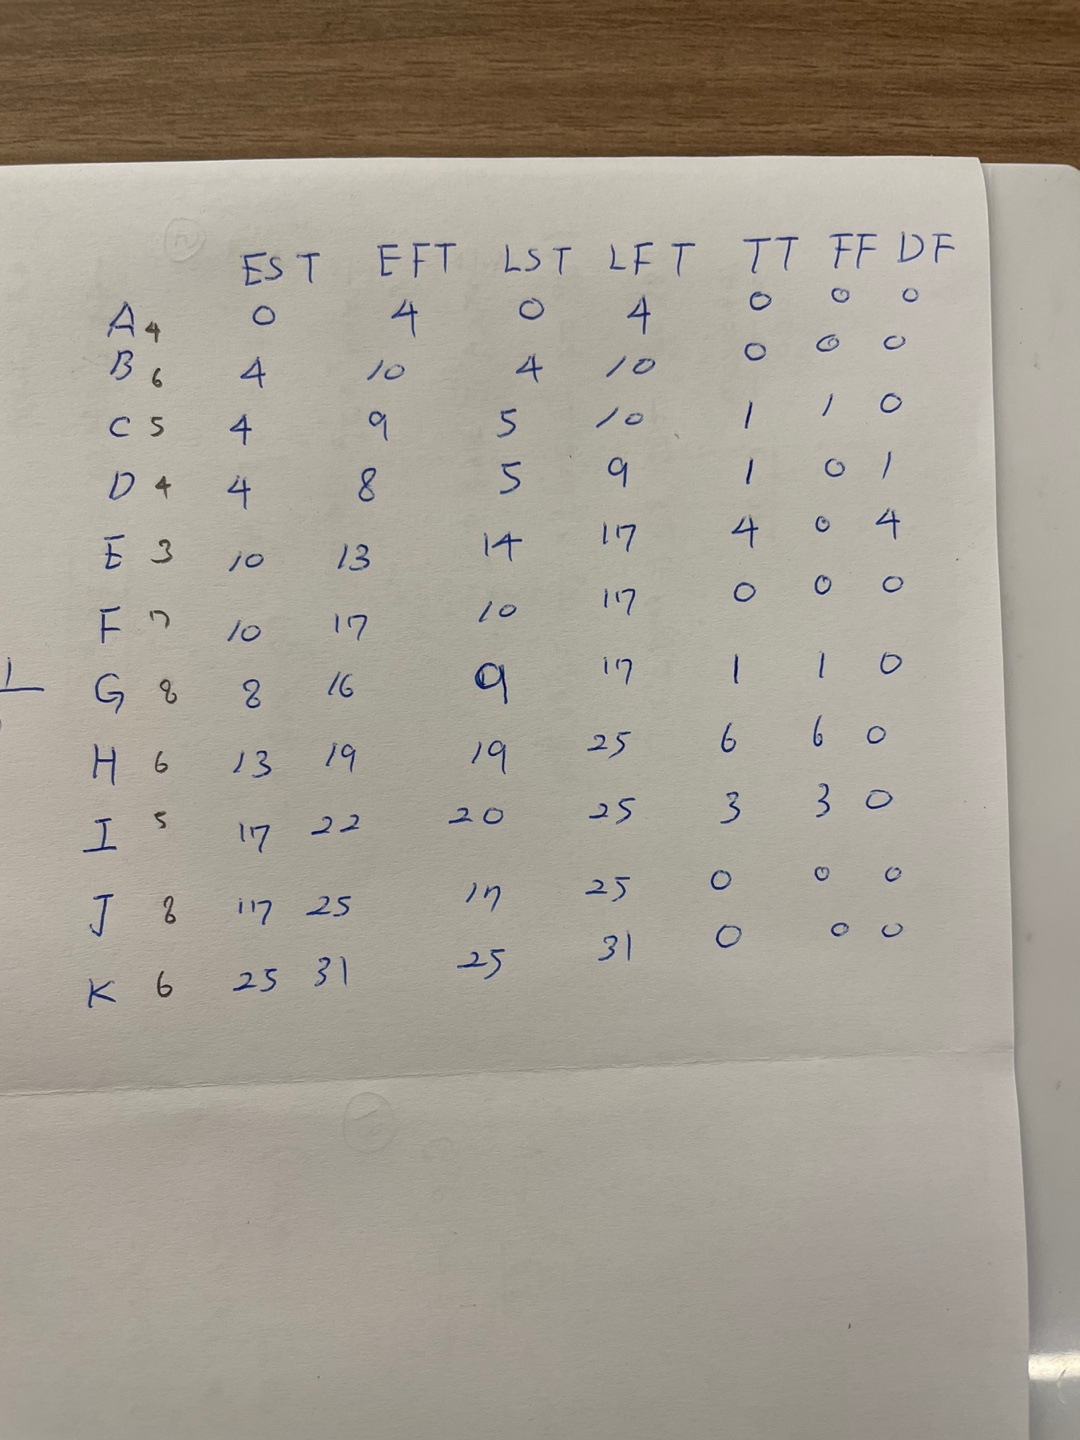 EST EFT LST LFT TT FF DF
A 4 0 4 0 4 0 0 0
B 6 4 10 4 10 0 0 0
C 5 4 9 5 10 1 1 0
D 4 4 8 5 9 1 0 1
E 3 10 13 14 17 4 0 4
F 7 10 17 10 17 0 0 0
G 8 8 16 9 17 1 1 0
H 6 13 19 19 25 6 6 0
I 5 17 22 20 25 3 3 0
J 8 17 25 17 25 0 0 0
K 6 25 31 25 31 0 0 0